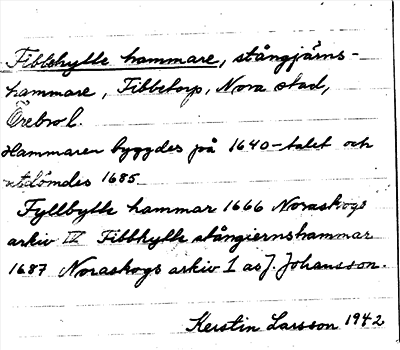 Fibbehytte hammare, stångjärns-
hammare, Fibbetorp, Nora stad,
Örebro l.
Hammaren byggdes på 1640-talet och
utdömdes 1685.
Fyllbytte hammar 1666 Noraskogs
arkiv IV Fibbhytte stångiernshammar
1687 Noraskogs arkiv 1 as J. Johansson.
Kerstin Larsson 1942